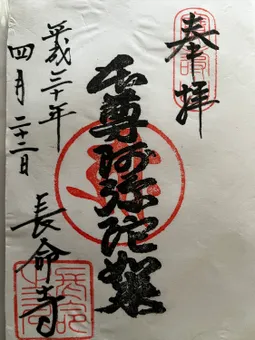 奉拝
本尊阿弥陀如来
平成三十年
四月二十二日
長命寺